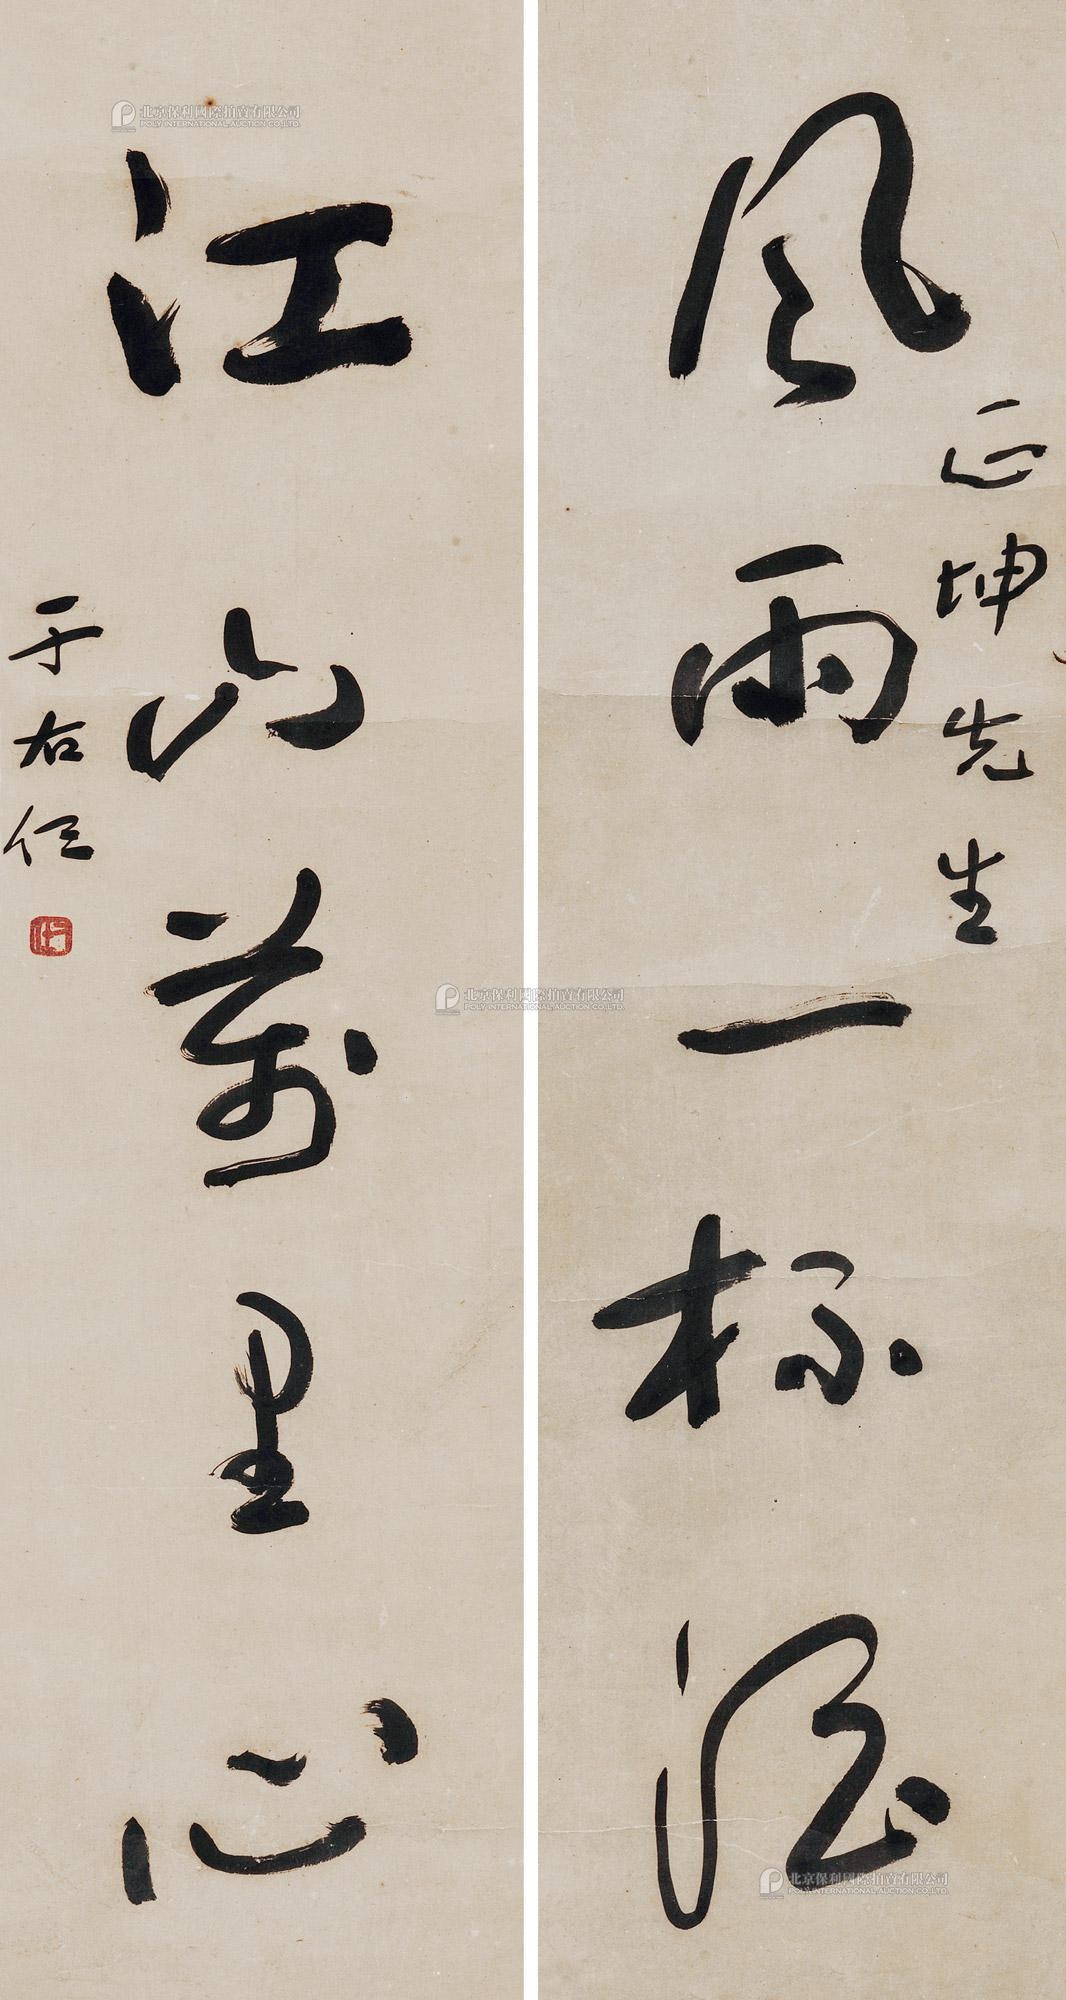 正坤先生
風雨一杯酒
江山萬里心
于右任
北京保利國際拍賣有限公司
POLY INTERNATIONAL AUCTION CO.,LTD.
北京保利國際拍賣有限公司
POLY INTERNATIONAL AUCTION CO.,LTD.
北京保利國際拍賣有限公司
POLY INTERNATIONAL AUCTION CO.,LTD.